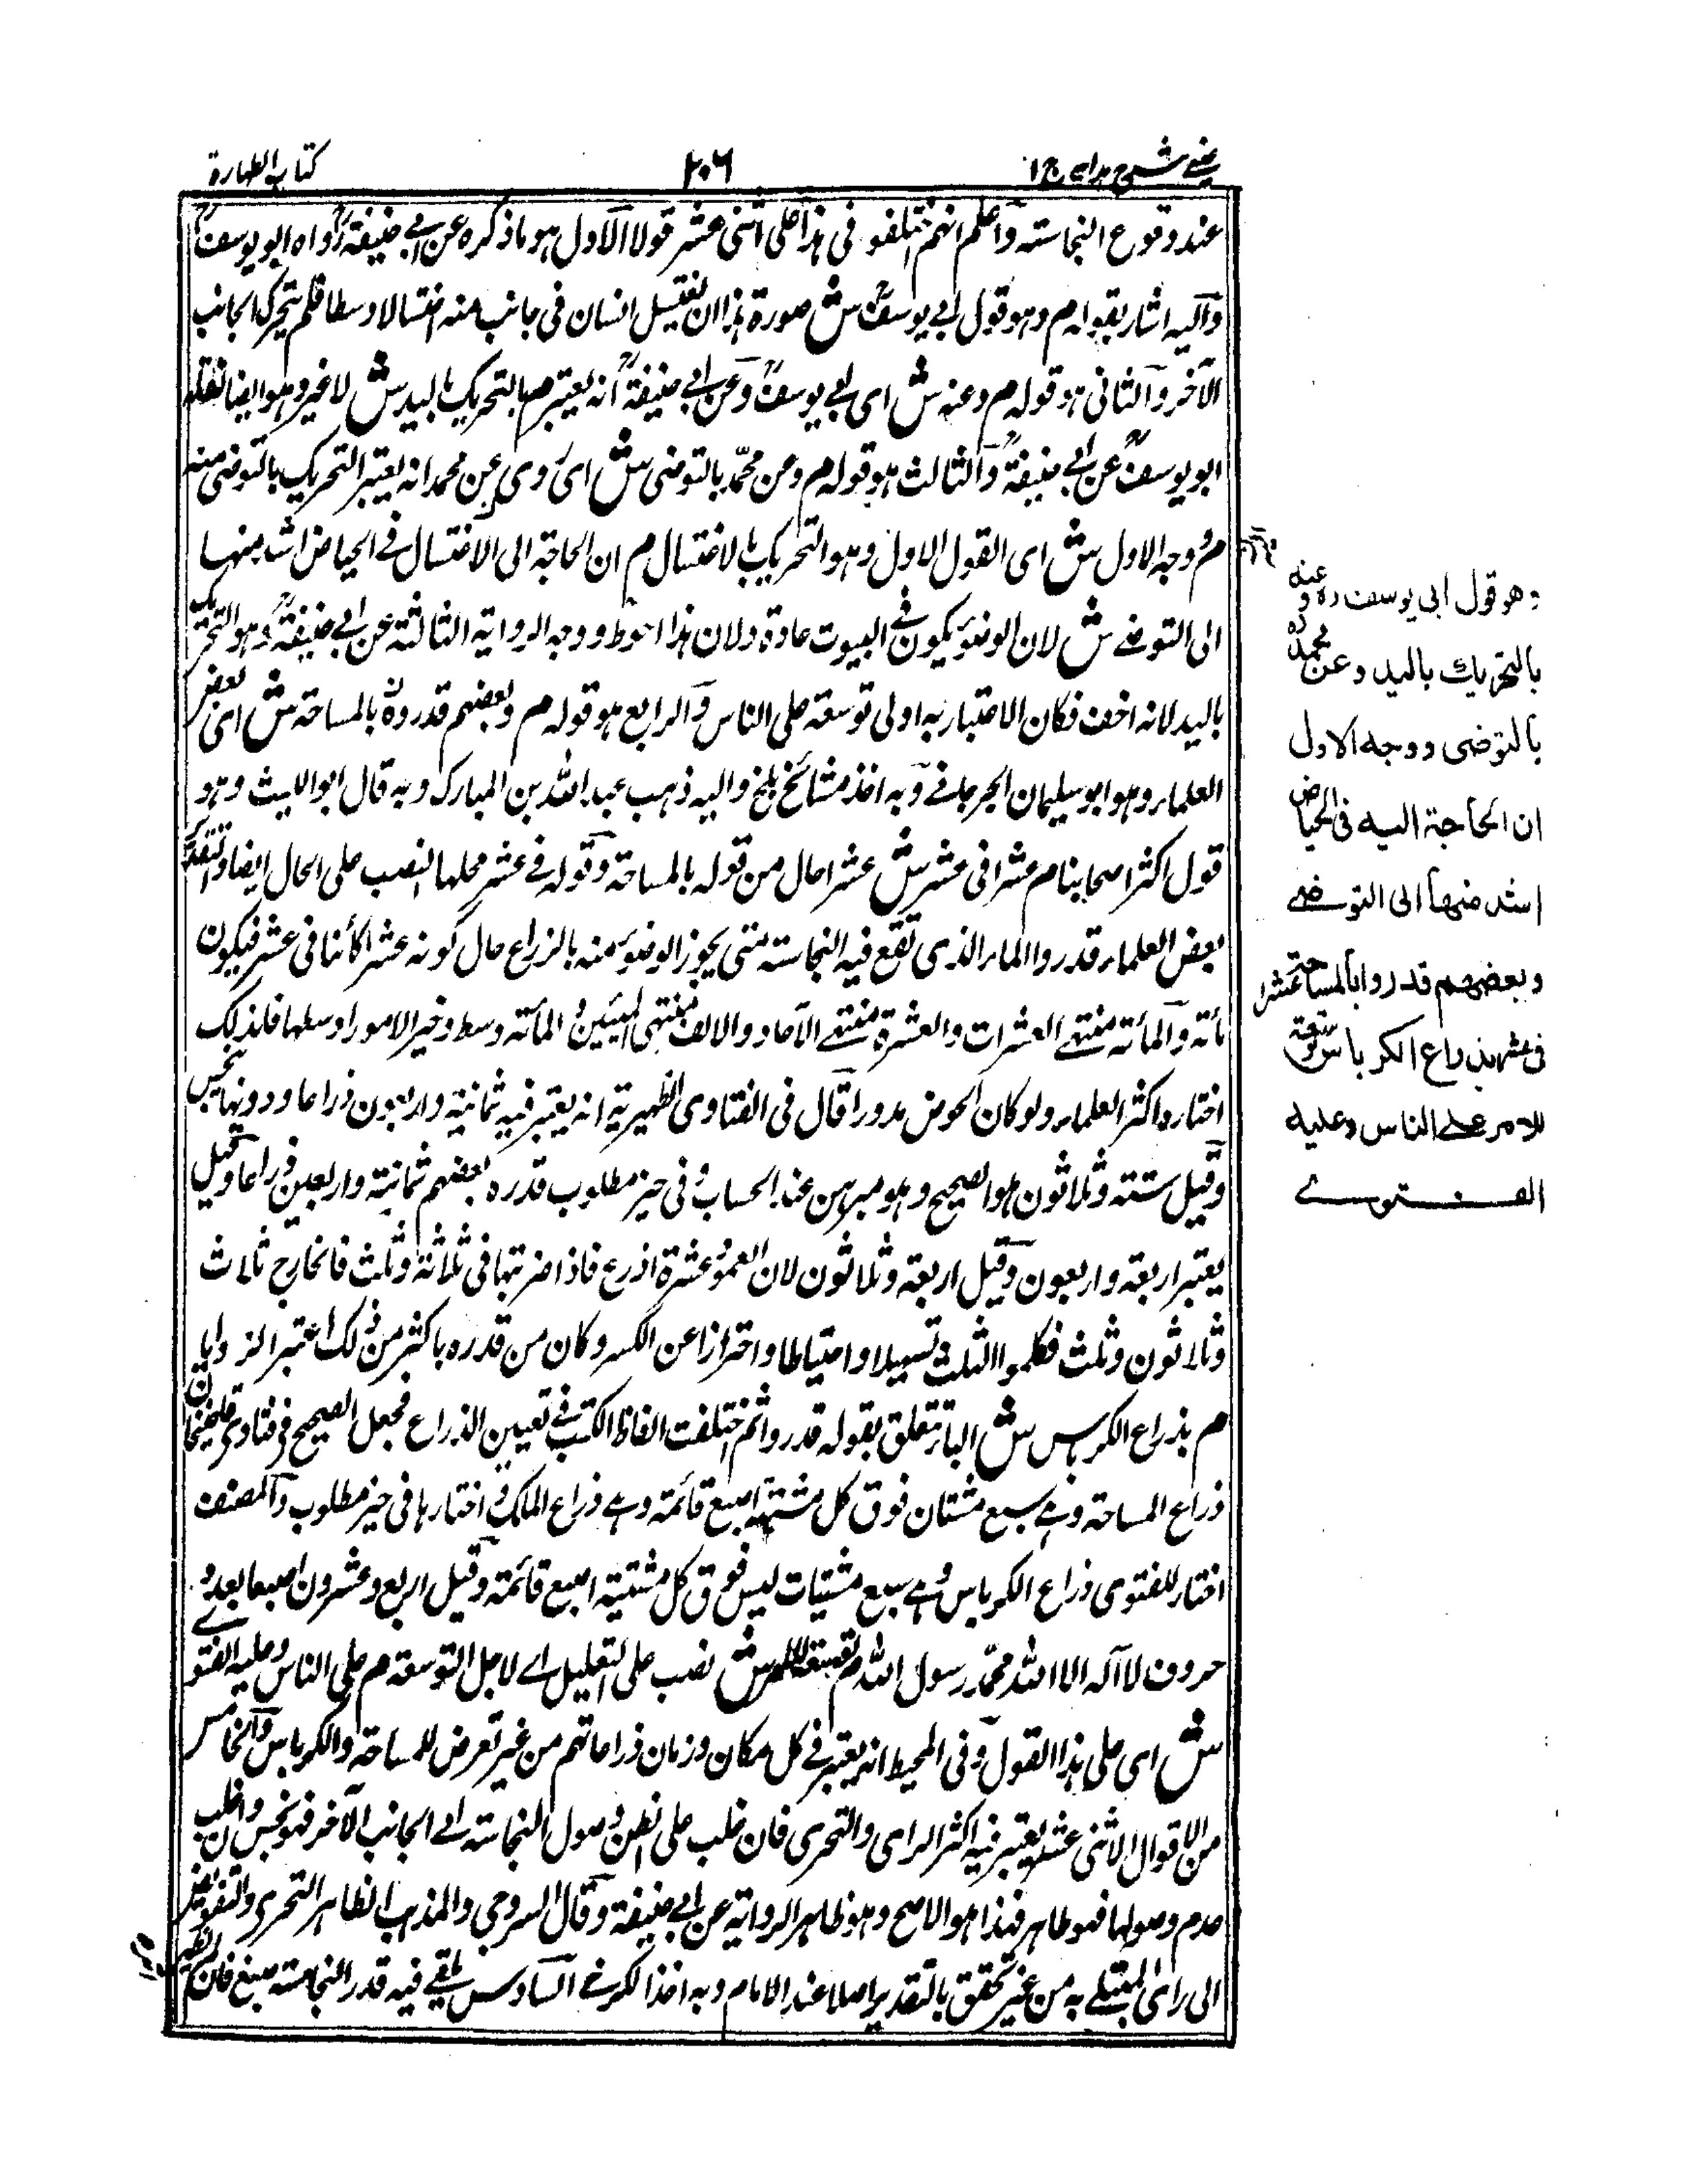 عينى شرح هدايه ج ١
٢٠٦
كتاب الطهارة
عند وقوع النجاسة واعلم انهم اختلفو فى هذا على اثنى عشر قولا الاول هو ما ذكره عن ابي حنيفة رواه ابو يوسف
واليه اشار بقوله م وهو قول ابي يوسف ش صورة هذا ان يغتسل انسان فى جانب منه اغتسالا وسطا فلم يتحرك الجانب
الآخر والثانى هو قوله م وعنه ش اى ابي يوسف وعن ابي حنيفة انه يعتبر م بالتحريك باليد ش لا غير وهو ايضا نقله
ابو يوسف عن ابي حنيفة والثالث هو قوله م وعن محمد بالتوضى ش اى روى عن محمد انه يعتبر التحريك بالتوضى منه
م ووجه الاول ش اى القول الاول وهو التحريك بالاغتسال م ان الحاجة الى الاغتسال في الحياض اشد منها
الى التوضے ش لان الوضوء يكون في البيوت عادة ولان هذا احوط ووجه الرواية الثالثة عن ابي حنيفة وهو التحريك
باليد لانه اخف فكان الاعتبار به اولى توسعة على الناس والرابع هو قوله م وبعضهم قدروه بالمساحة ش اى بعض
العلماء وهو ابو سليمان الجرجانے وبه اخذ مشائخ بلخ واليه ذهب عبد الله بن المبارك وبه قال ابو الليث وهو
قول اكثر اصحابنا م عشرا فى عشر ش عشرا حال من قوله بالمساحة وقوله فے عشر محلها النصب على الحال ايضا والتقدير
بعض العلماء قدروا الماء الذى تقع فيه النجاسة متى يجوز الوضوء منه بالزراع حال كونه عشرا كائنا فى عشر فيكون
مأته والمأته منتهے العشرات والعشرة منتهے الآحاد والالف منتهى المئتين والمأته وسط وخير الامور اوسطها فلذلك
اختاره اكثر العلماء ولو كان الحوض مدورا قال فى الفتاوى الظهيرية انه يعتبر فيه ثمانية واربعون ذراعا ودونها ينجس
وقيل ستة وثلاثون هو الصحيح وهو مبرهن عند الحساب وفى خير مطلوب قدره بعضهم ثمانية واربعين ذراعا وقيل
يعتبر اربعة واربعون وقيل اربعة وثلاثون لان العمود عشرة اذرع فاذا ضربتها فى ثلاثة وثلث فالخارج ثلاث
وثلاثون وثلث فكلموا الثلث تسهيلا واحتياطا واحترازا عن الكسر وكان من قدره باكثر من ذلك اعتبر الزوايا
م بذراع الكرباس ش الباء تتعلق بقوله قدروا ثم اختلفت الفاظ الكتب فے تعيين الذراع فجعل الصحيح فى فتاوى قاضيخان
ذراع المساحة وهے سبع مشتان فوق كل مشتة اصبع قائمة وهے ذراع الملك واختارها فى خير مطلوب والمصنف
اختار للفتوى ذراع الكرباس وهے سبع مشتيات ليس فوق كل مشتية اصبع قائمة وقيل اربع وعشرون اصبعا بعدد
حروف لا اله الا الله محمد رسول الله م توسعة للامر ش نصب على التعليل اے لاجل التوسعة م على الناس وعليه الفتوے
ش اى على هذا القول وفى المحيط انه يعتبر فے كل مكان وزمان ذراعاتهم من غير تعرض للمساحة والكرباس والخامس
من الاقوال الاثنى عشر يعتبر فيه اكثر الراى والتحرى فان غلب على الظن وصول النجاسة الے الجانب الآخر فهو نجس وان غلب
عدم وصولها فهو طاهر فهذا هو الاصح وهو ظاهر الرواية عن ابي حنيفة وقال السروجي والمذهب الظاهر التحرى والتفويض
الى راى المبتلے به من غير تحقق بالتقدير اصلا عند الامام وبه اخذ الكرخے السادس يلقے فيه قدر النجاسة صبغ فان لم يظهر
وهو قول ابى يوسف رہ وعنه
بالتحريك باليد وعن محمد رہ
بالتوضى ووجه الاول
ان الحاجة اليه فى الحياض
اشد منها الى التوضے
وبعضهم قدروا بالمساحة عشرا
فى عشر بذراع الكرباس توسعة
للامر علے الناس وعليه
الفتوے